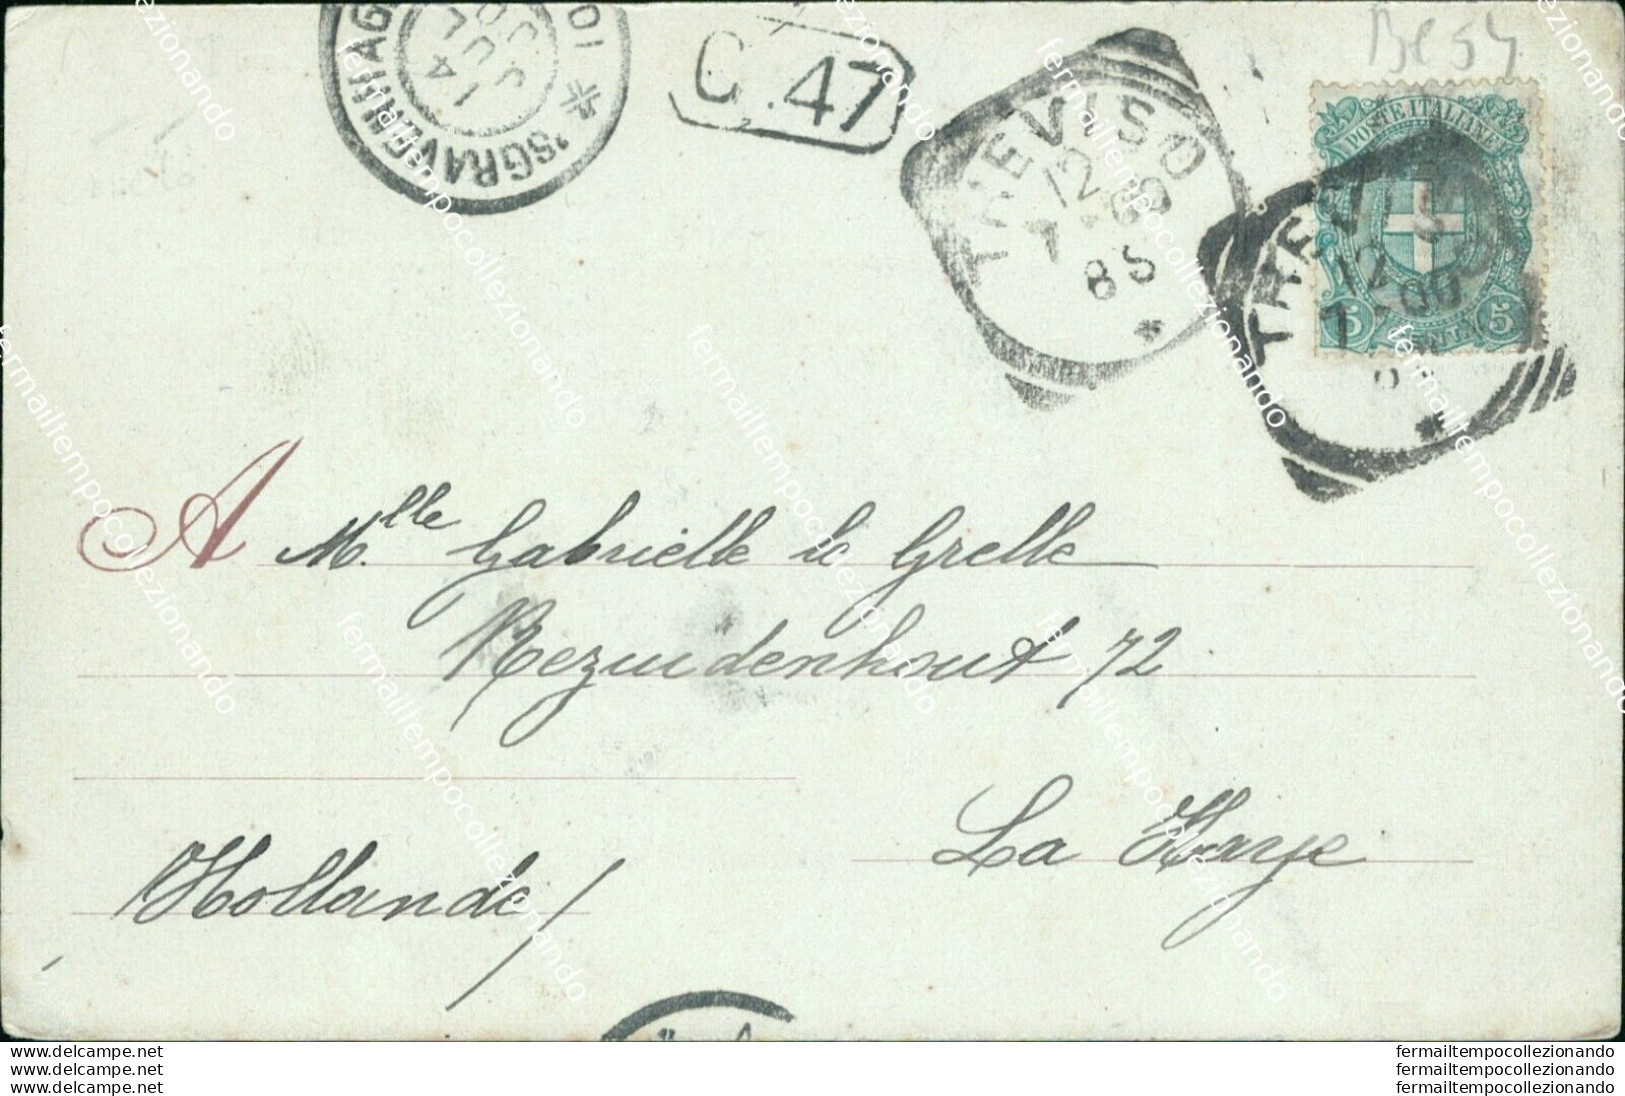 Be 54
'SGRAVENHAG
14 JUL
C.47
TREVISO
12
7-00
8S
*
POSTE ITALIANE
5 5
TREVISO
12
7-00
*
A Mlle. Gabrielle le Grelle
Bezuidenhout 72
La Haye
Hollande/
www.delcampe.net
www.delcampe.net
www.delcampe.net
fermailtempocollezionando
fermailtempocollezionando
fermailtempocollezionando